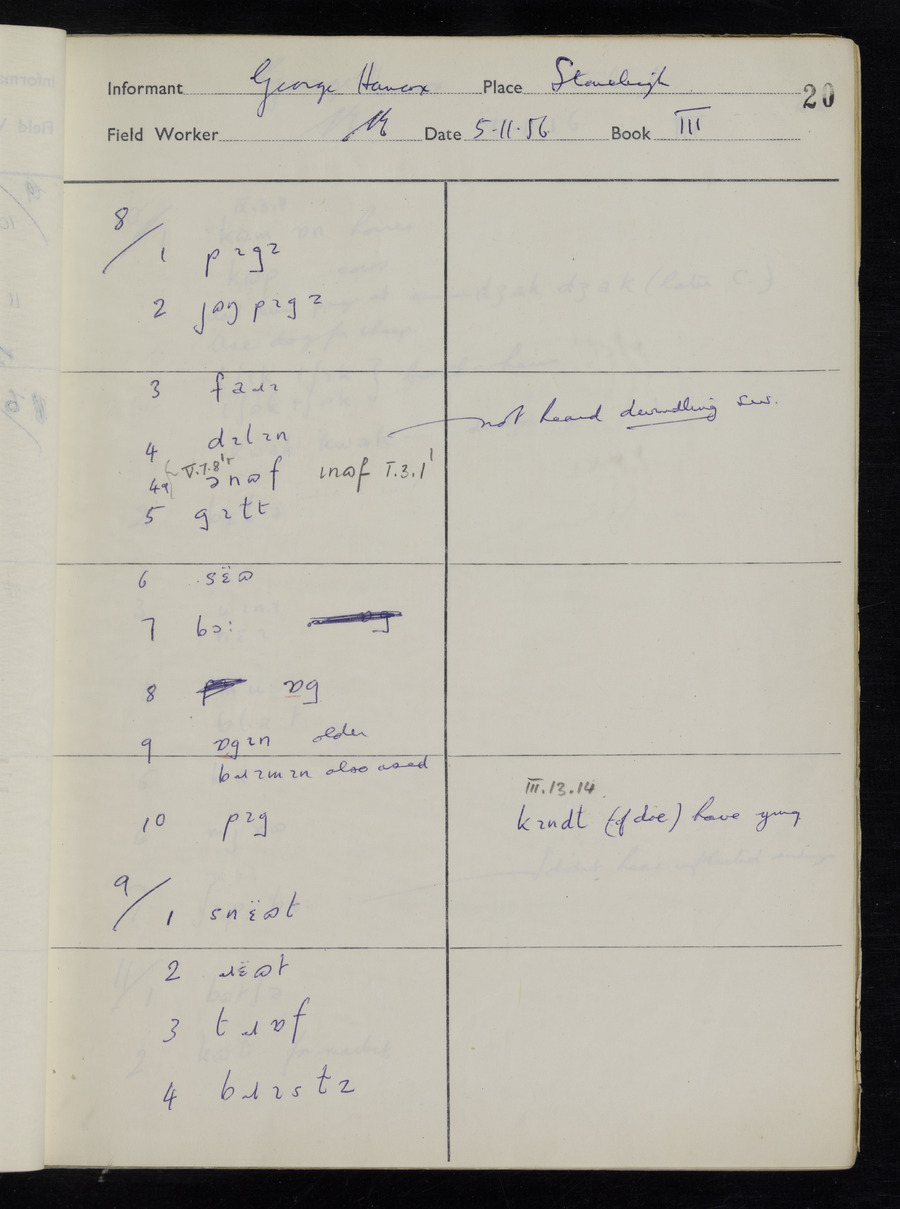 Informant George Hancox Place Stoneleigh 20
Field Worker Date 5-11-56 Book III
8/1 pɪgz
2 jɷŋ pɪgz
3 faɹɪ
4 dɪlɪn not heard dwindling sur.
4a V.7.8 ənɷf ɩnɷf I.3.1
5 gɪlt
6 sëɷ
7 bɔ:
8 ɒg
9 ɒgɪn older
bɹɪmɪn also used
III.13.14
10 pɪg kɪndt (of doe) have yung
9/1 snëɷt
2 ɹëɷt
3 tɹɒf
4 bɹɪstz